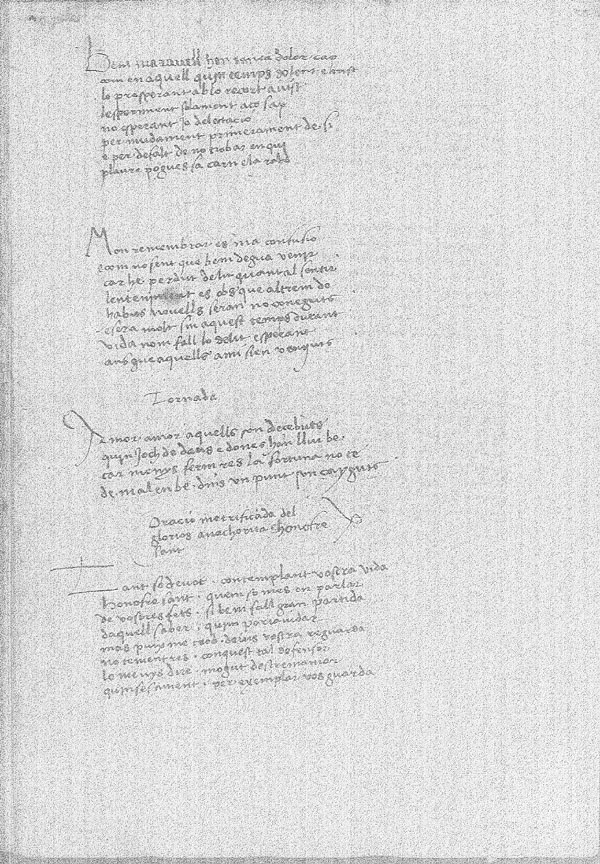 Bem maravell hon sença dolor cap
com en aquell quin temps dolent e trist
lo prosperant ab lo recort a vist
lesperiment solament aço sap
no esperant lo delectacio
per mudament primerament de si
e per defalt de no trobar en qui
plaure pogues sa carn e la raho
Mon remembrar es ma confusio
com no sent que bem degua venir
car he perdut delit quant al sentir
lenteniment es obs que altrem do
habits novells seran no coneguts
e sera molt sin aquest temps durant
vida nom fall lo delit esperant
ans que aquells a mi sien venguts
Tornada
Amor amor aquells son decebuts
quin joch de daus e dones han llur be
car menys ferm res la fortuna no te
de mal en be dins un punt son cayguts
Oracio metrificada del
glorios anachorita Honofre
sant
Tant so devot · contemplant vostra vida
Honofre sant · quem so mes en parlar
de vostres fets · si bem fall gran partida
daquell saber · quim poria vidar
mas puix me trob · devis vostra reguarda
no tement res · conquest tal defensor
lo menys dire · mogut dostremanior
quim · per exemplar vos guarda